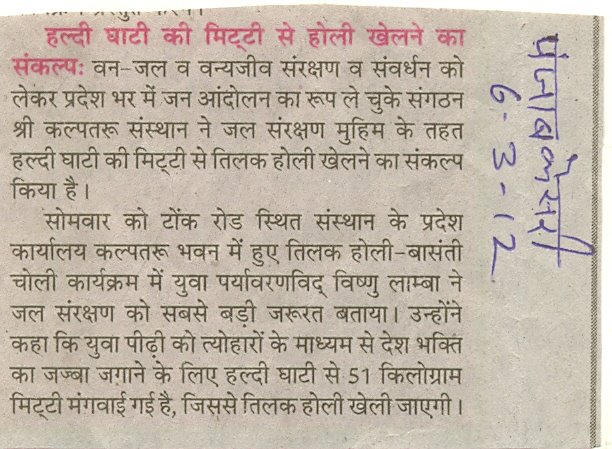 हल्दी घाटी की मिट्टी से होली खेलने का
संकल्पः वन-जल व वन्यजीव संरक्षण व संवर्धन को
लेकर प्रदेश भर में जन आंदोलन का रूप ले चुके संगठन
श्री कल्पतरू संस्थान ने जल संरक्षण मुहिम के तहत
हल्दी घाटी की मिट्टी से तिलक होली खेलने का संकल्प
किया है।
सोमवार को टोंक रोड स्थित संस्थान के प्रदेश
कार्यालय कल्पतरू भवन में हुए तिलक होली-बासंती
चोली कार्यक्रम में युवा पर्यावरणविद् विष्णु लाम्बा ने
जल संरक्षण को सबसे बड़ी जरूरत बताया। उन्होंने
कहा कि युवा पीढ़ी को त्योहारों के माध्यम से देश भक्ति
का जज्बा जगाने के लिए हल्दी घाटी से 51 किलोग्राम
मिट्टी मंगवाई गई है, जिससे तिलक होली खेली जाएगी।
पंजाब केसरी
6-3-12